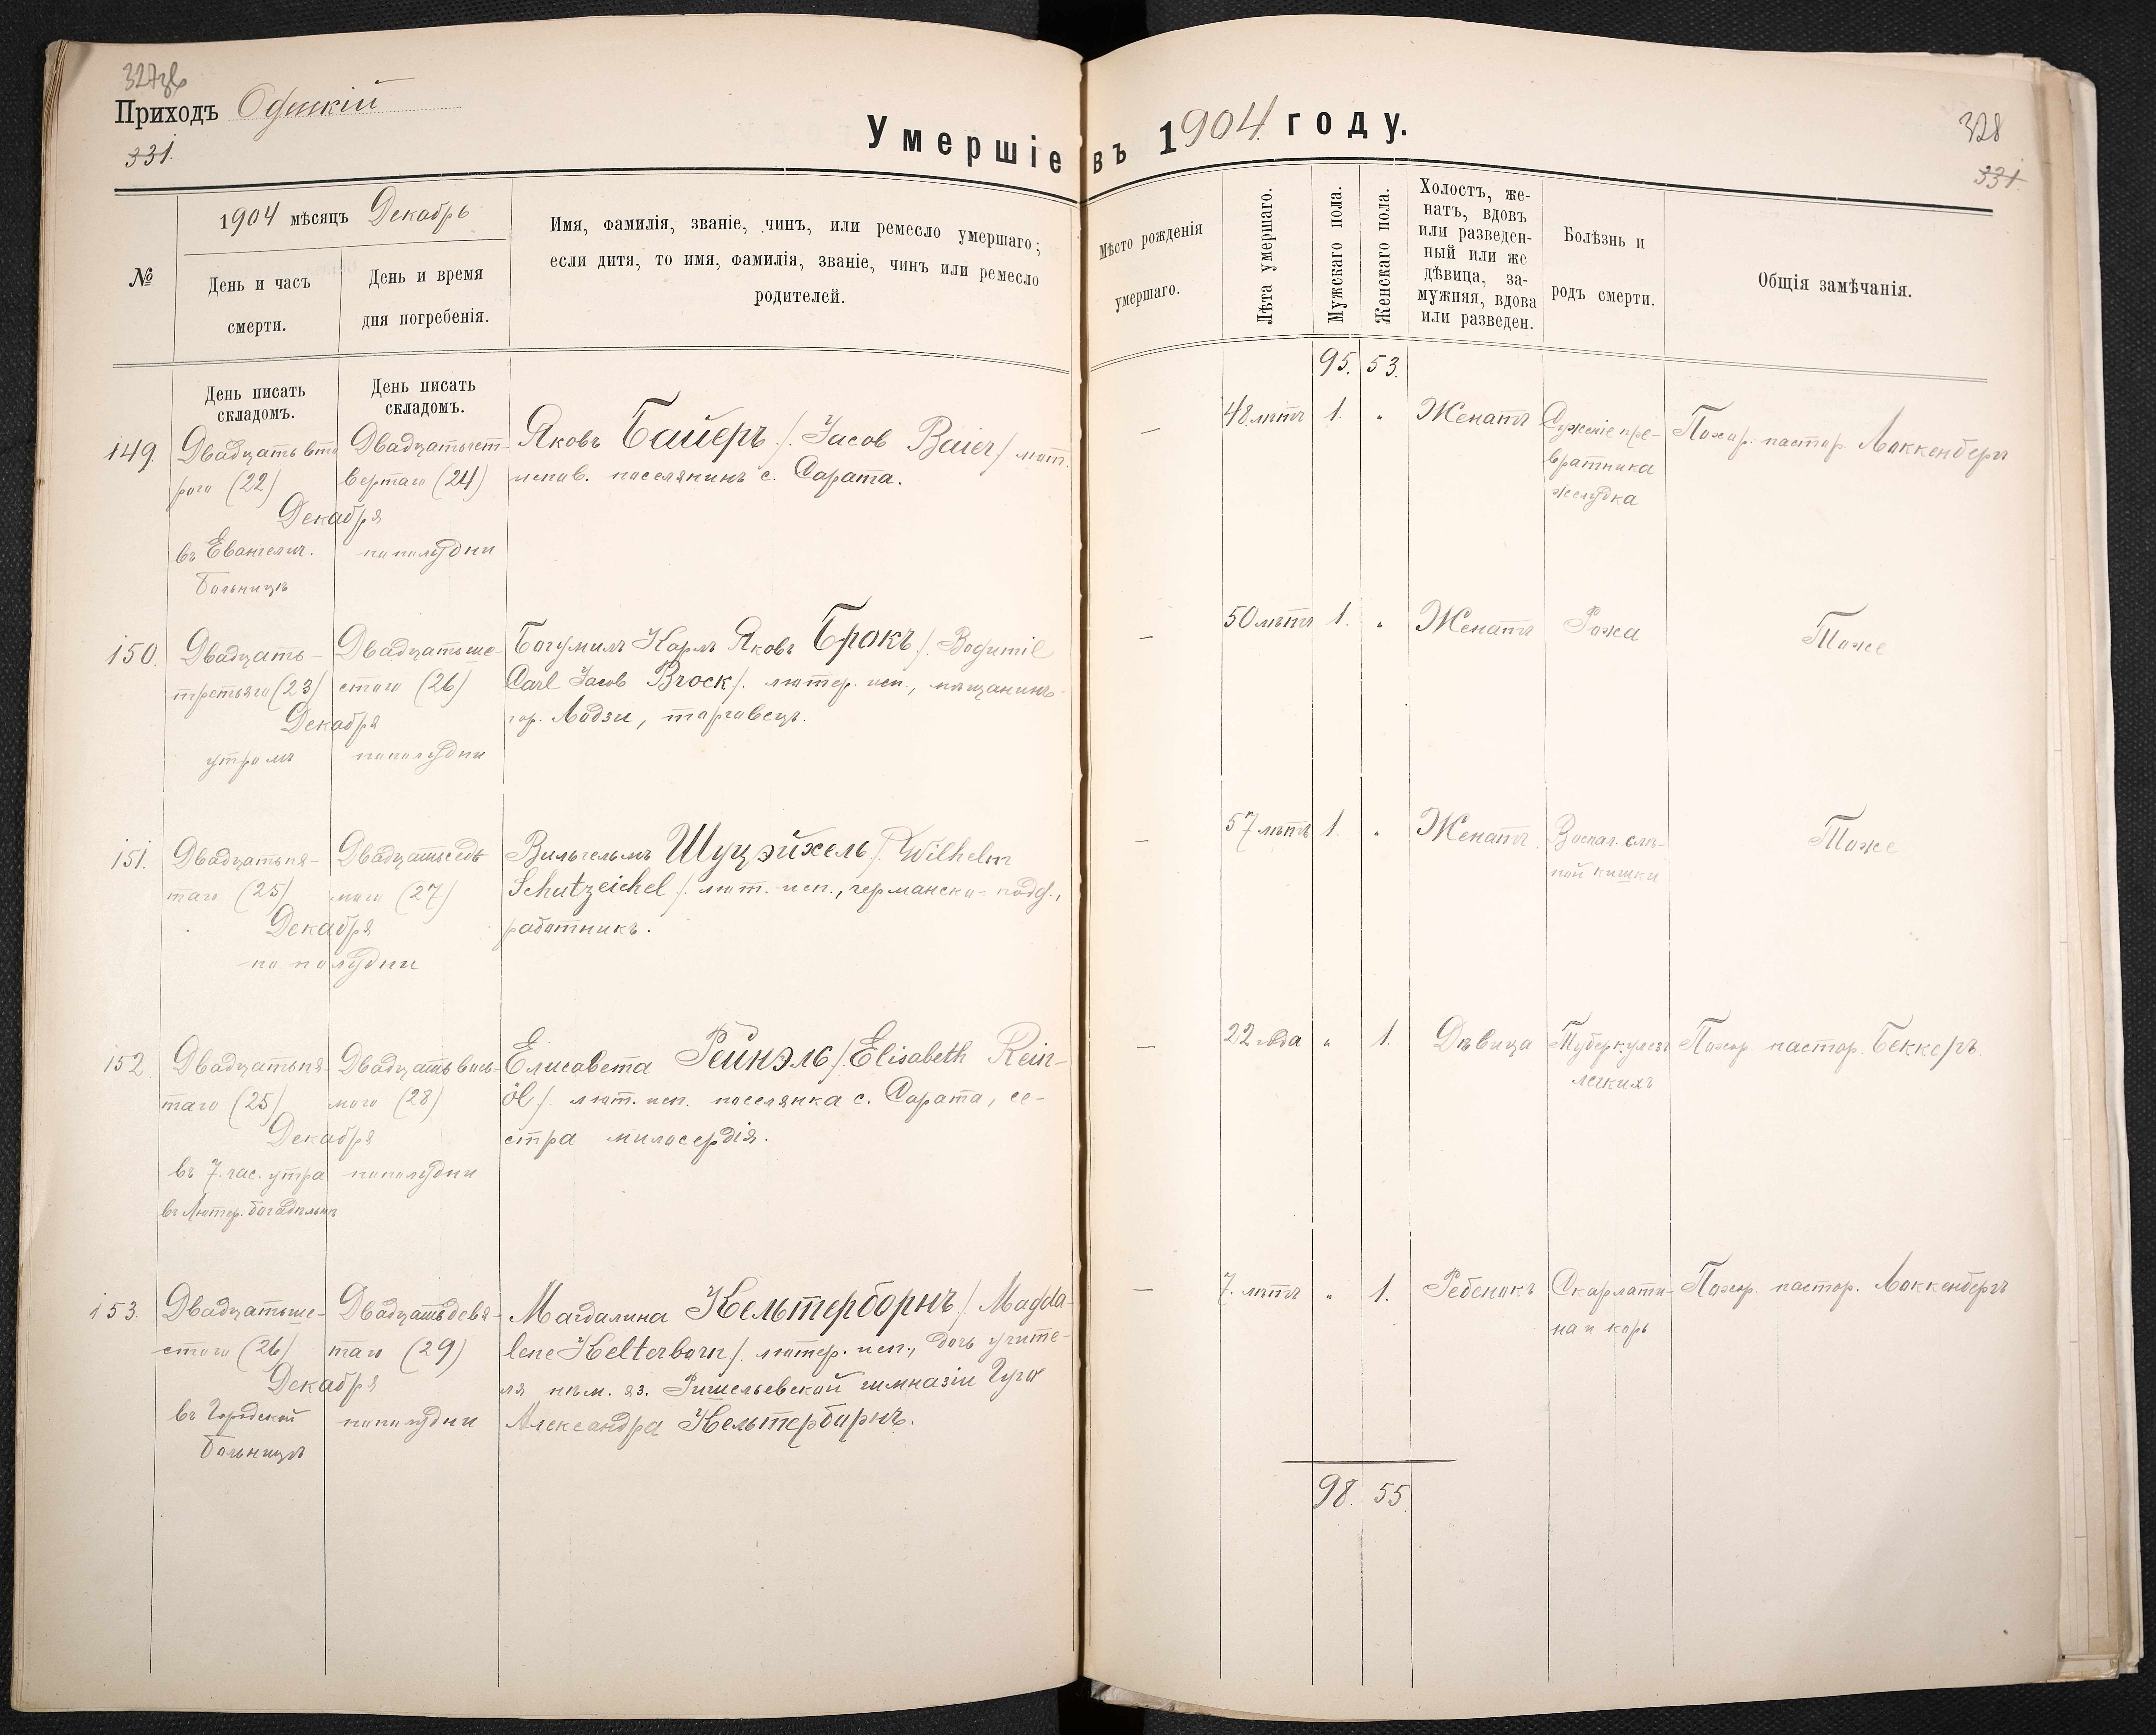 327об
Приходъ Одесскій
331.
Умершіе въ 1904 году.
328
331.
№
1904 мѣсяцъ Декабрь
День и часъ
смерти.
День и время
дня погребенія.
Имя, фамилія, званіе, чинъ, или ремесло умершаго;
если дитя, то имя, фамилія, званіе, чинъ или ремесло
родителей.
Мѣсто рожденія
умершаго.
Лѣта умершаго.
Мужскаго пола.
Женскаго пола.
Холостъ, же-
натъ, вдовъ
или разведен-
ный или же
дѣвица, за-
мужняя, вдова
или разведен.
Болѣзнь и
родъ смерти.
Общія замѣчанія.
95. 53.
День писать
складомъ.
День писать
складомъ.
149.
Двадцать вто
раго (22)
Двадцатьчет-
вертаго (24)
Декабря
въ Евангелич.
больницѣ
пополудни
Яковъ Байеръ /. Jacob Baier /. лют.
испов. поселянинъ с. Сарата.
—
48 лѣтъ
1.
"
Женатъ
Суженіе при-
вратника
желудка
Похор. пастор. Локкенбергъ
150.
Двадцать-
третьяго (23)
Двадцатьше-
стого (26)
Декабря
утромъ
пополудни
Богумилъ Карлъ Яковъ Брокъ /. Bogumil
Carl Jacob Brock /. лютер. исп., мѣщанинъ
гор. Лодзи, торговецъ.
—
50 лѣтъ
1.
"
Женатъ
Рожа
Тоже
151.
Двадцатьпя-
таго (25)
Двадцатьседь
мого (27)
Декабря
по полудни
Вильгельмъ Шуцэйхель /. Wilhelm
Schutzeichel /. лют. исп., германско-подд.,
работникъ.
—
57 лѣтъ
1.
"
Женатъ
Воспал. слѣ-
пой кишки
Тоже
152
Двадцатьпя-
таго (25)
Двадцать вось-
мого (28)
Декабря
въ 7. час. утра
въ Лютер. богадѣльнѣ
пополудни
Елисавета Рейнэль /. Elisabeth Rein-
öl /. лют. исп. поселянка с. Сарата, се-
стра милосердія.
—
22 года
"
1.
Дѣвица
Туберкулезъ
легкихъ
Похор. пастор. Беккеръ
153.
Двадцатьше-
стого (26)
Двадцатьдевя-
таго (29)
Декабря
въ Городской
больницѣ
пополудни
Магдалина Кельтерборнъ /. Magda-
lene Kelterborn /. лютер. исп., дочь учите-
ля нѣм. яз. Ришельевской гимназіи Гуго
Александра Кельтерборнъ.
—
7. лѣтъ
"
1.
Ребенокъ
Скарлати-
на и корь
Похор. пастор. Локкенбергъ
98. 55.